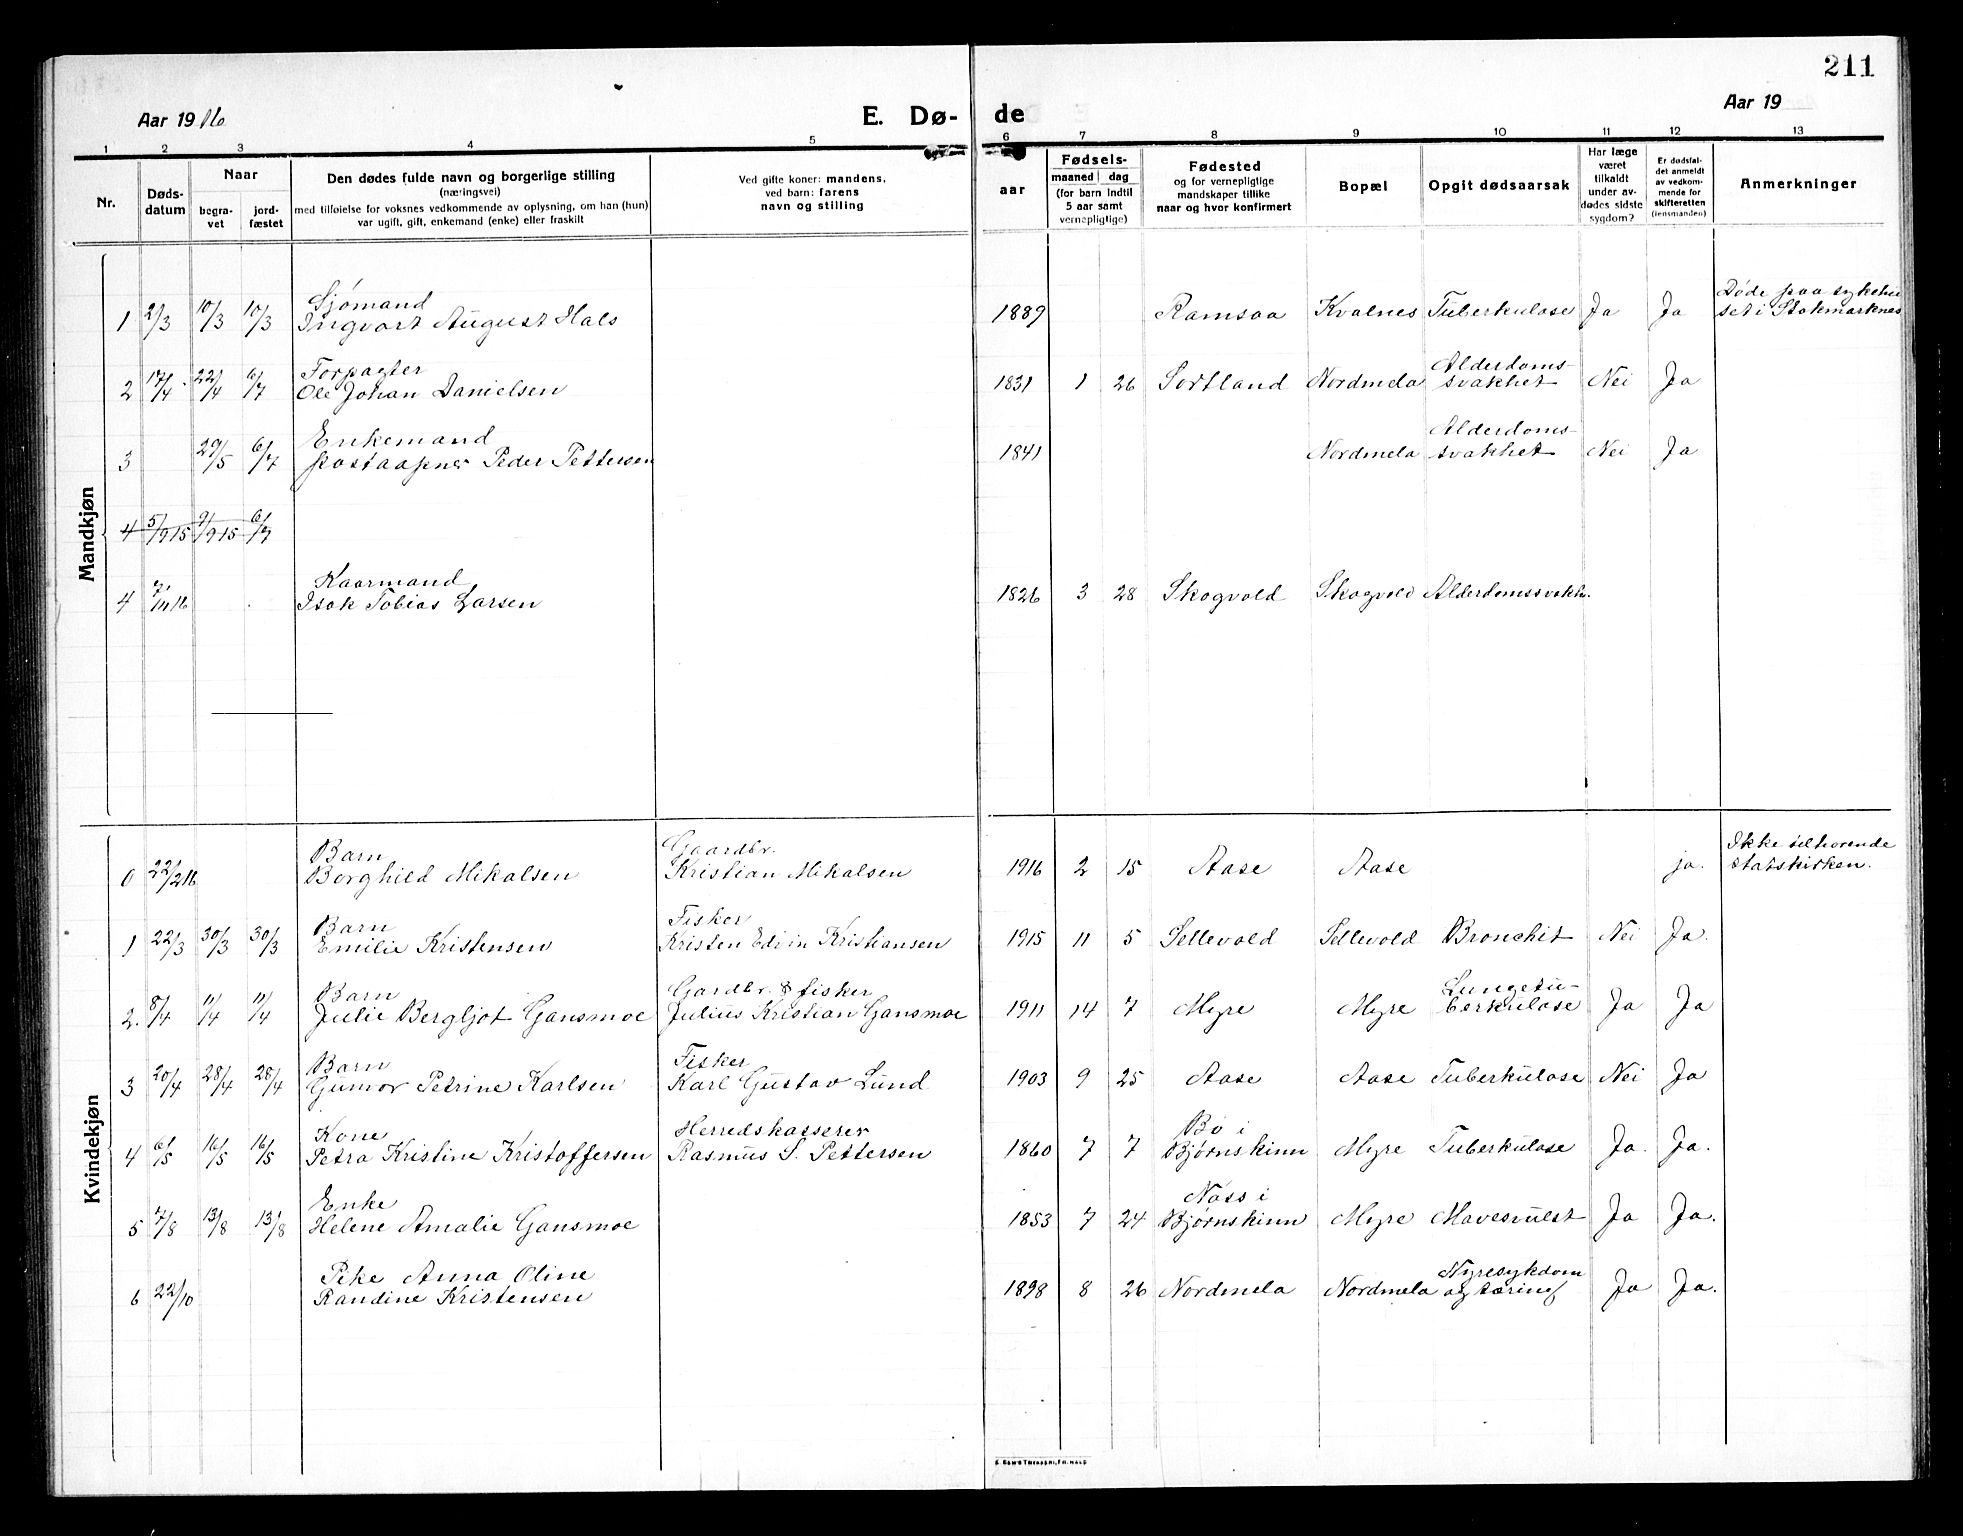 211
Aar 1916
E. Dø- de
Aar 19
1 2 3 4 5 6 7 8 9 10 11 12 13
Nr.
Døds-
datum
Naar
begra-
vet
jord-
fæstet
Den dødes fulde navn og borgerlige stilling
(næringsvei)
med tilføielse for voksnes vedkommende av oplysning, om han (hun)
var ugift, gift, enkemand (enke) eller fraskilt
Ved gifte koner: mandens,
ved barn: farens
navn og stilling
aar
Fødsels-
maaned dag
(for barn indtil
5 aar samt
vernepligtige)
Fødested
og for vernepligtige
mandskaper tillike
naar og hvor konfirmert
Bopæl
Opgit dødsaarsak
Har læge
været
tilkaldt
under av-
dødes sidste
sygdom?
Er dødsfal-
det anmeldt
av vedkom-
mende for
skifteretten
(lensmanden)
Anmerkninger
Mandkjøn
Sjømand
1 2/3 10/3 10/3 Ingvart August Hals 1889 Ramsaa Kvalnes Tuberkulose Ja Ja
Døde paa sykehu
set i Stokmarknes
Forpagter
2 17/4 22/4 6/7 Ole Johan Danielsen 1831 1 26 Sortland Nordmela Alderdoms-
svakhet Nei Ja
Enkemand
3 29/5 6/7 postaapner Peder Pettersen 1841 Nordmela Alderdoms-
svakhet Nei Ja
4 5/9 15 9/9 15 6/7
Kaarmand
4 7/11 16 Isak Tobias Larsen 1826 3 28 Skogvold Skogvold Alderdomssvakh.
Kvindekjøn
Barn Gaardbr.
0 22/2 16 Borghild Mikalsen Kristian Mikalsen 1916 2 15 Aase Aase ja.
Ikke tilhørende
statskirken.
Barn Fisker
1 22/3 30/3 30/3 Emilie Kristensen Kristen Edvin Kristiansen 1915 11 5 Sellevold Sellevold Bronchit Nei Ja.
Barn Gardbr. & fisker
2. 8/4 11/4 11/4 Julie Bergljot Gansmoe Julius Kristian Gansmoe 1911 14 7 Myre Myre Lungetu-
berkulose Ja Ja
Barn Fisker
3 20/4 28/4 28/4 Gunvor Petrine Karlsen Karl Gustav Lund 1903 9 25 Aase Aase Tuberkulose Nei Ja
Kone Herredskasserer
4 6/5 16/5 16/5 Petra Kristine Kristoffersen Rasmus S. Pettersen 1860 7 7 Bø i
Bjørnskinn Myre Tuberkulose Ja. Ja.
Enke
5 7/8 13/8 13/8 Helene Amalie Gansmoe 1853 7 24 Nøss i
Bjørnskinn Myre Mavesvulst Ja Ja.
Pike Anna Oline
6 22/10 Randine Kristensen 1898 8 26 Nordmela Nordmela Nyresykdom
og tæring Ja Ja.